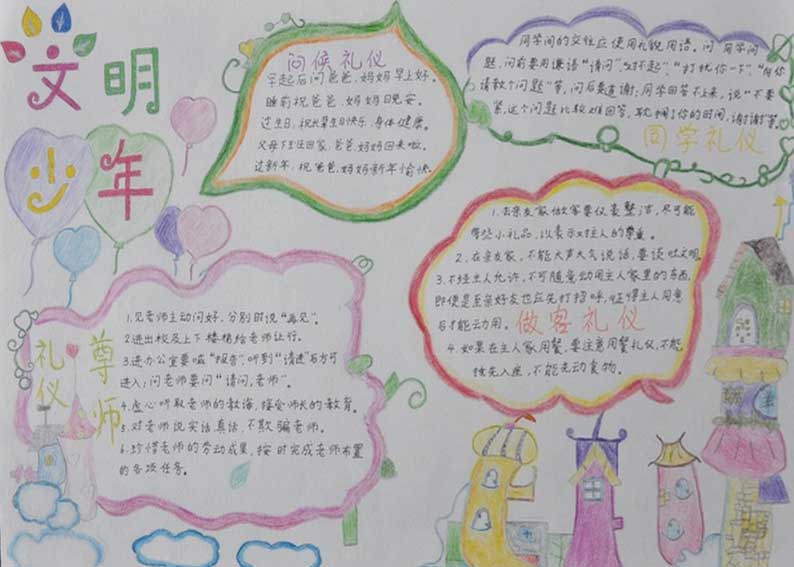 文明
少年
问候礼仪
早起后问爸爸、妈妈早上好。
睡前祝爸爸、妈妈晚安。
过生日,祝长辈生日快乐、身体健康。
父母下班回家,爸爸、妈妈回来啦。
过新年,祝爸爸、妈妈新年愉快。
同学间的交往应使用礼貌用语。问同学问
题,问前要用谦语“请问”、“对不起”、“打扰你一下”、“向你
请教个问题”等,问后要道谢;同学回答不上来,说“不要
紧,这个问题比较难回答,耽搁了你的时间,谢谢!”等。
同学礼仪
1.去亲友家做客要仪表整洁,尽可能
带些小礼品,以表示对主人的尊重。
2.在亲友家,不能大声大气说话,要谈吐文明
3.不经主人允许,不可随意动用主人家里的东西,
即使是至亲好友也应先打招呼,征得主人同意
后才能动用。
做客礼仪
4.如果在主人家用餐,要注意用餐礼仪,不能
抢先入座,不能先动食物。
尊师
礼仪
1.见老师主动问好,分别时说“再见”。
2.进出校及上下楼梯给老师让行。
3.进办公室要喊“报告”,听到“请进”后方可
进入;问老师要问“请问,老师”。
4.虚心听取老师的教诲,接受师长的教育。
5.对老师说实话、真话,不欺骗老师。
6.珍惜老师的劳动成果,按时完成老师布置
的各项任务。